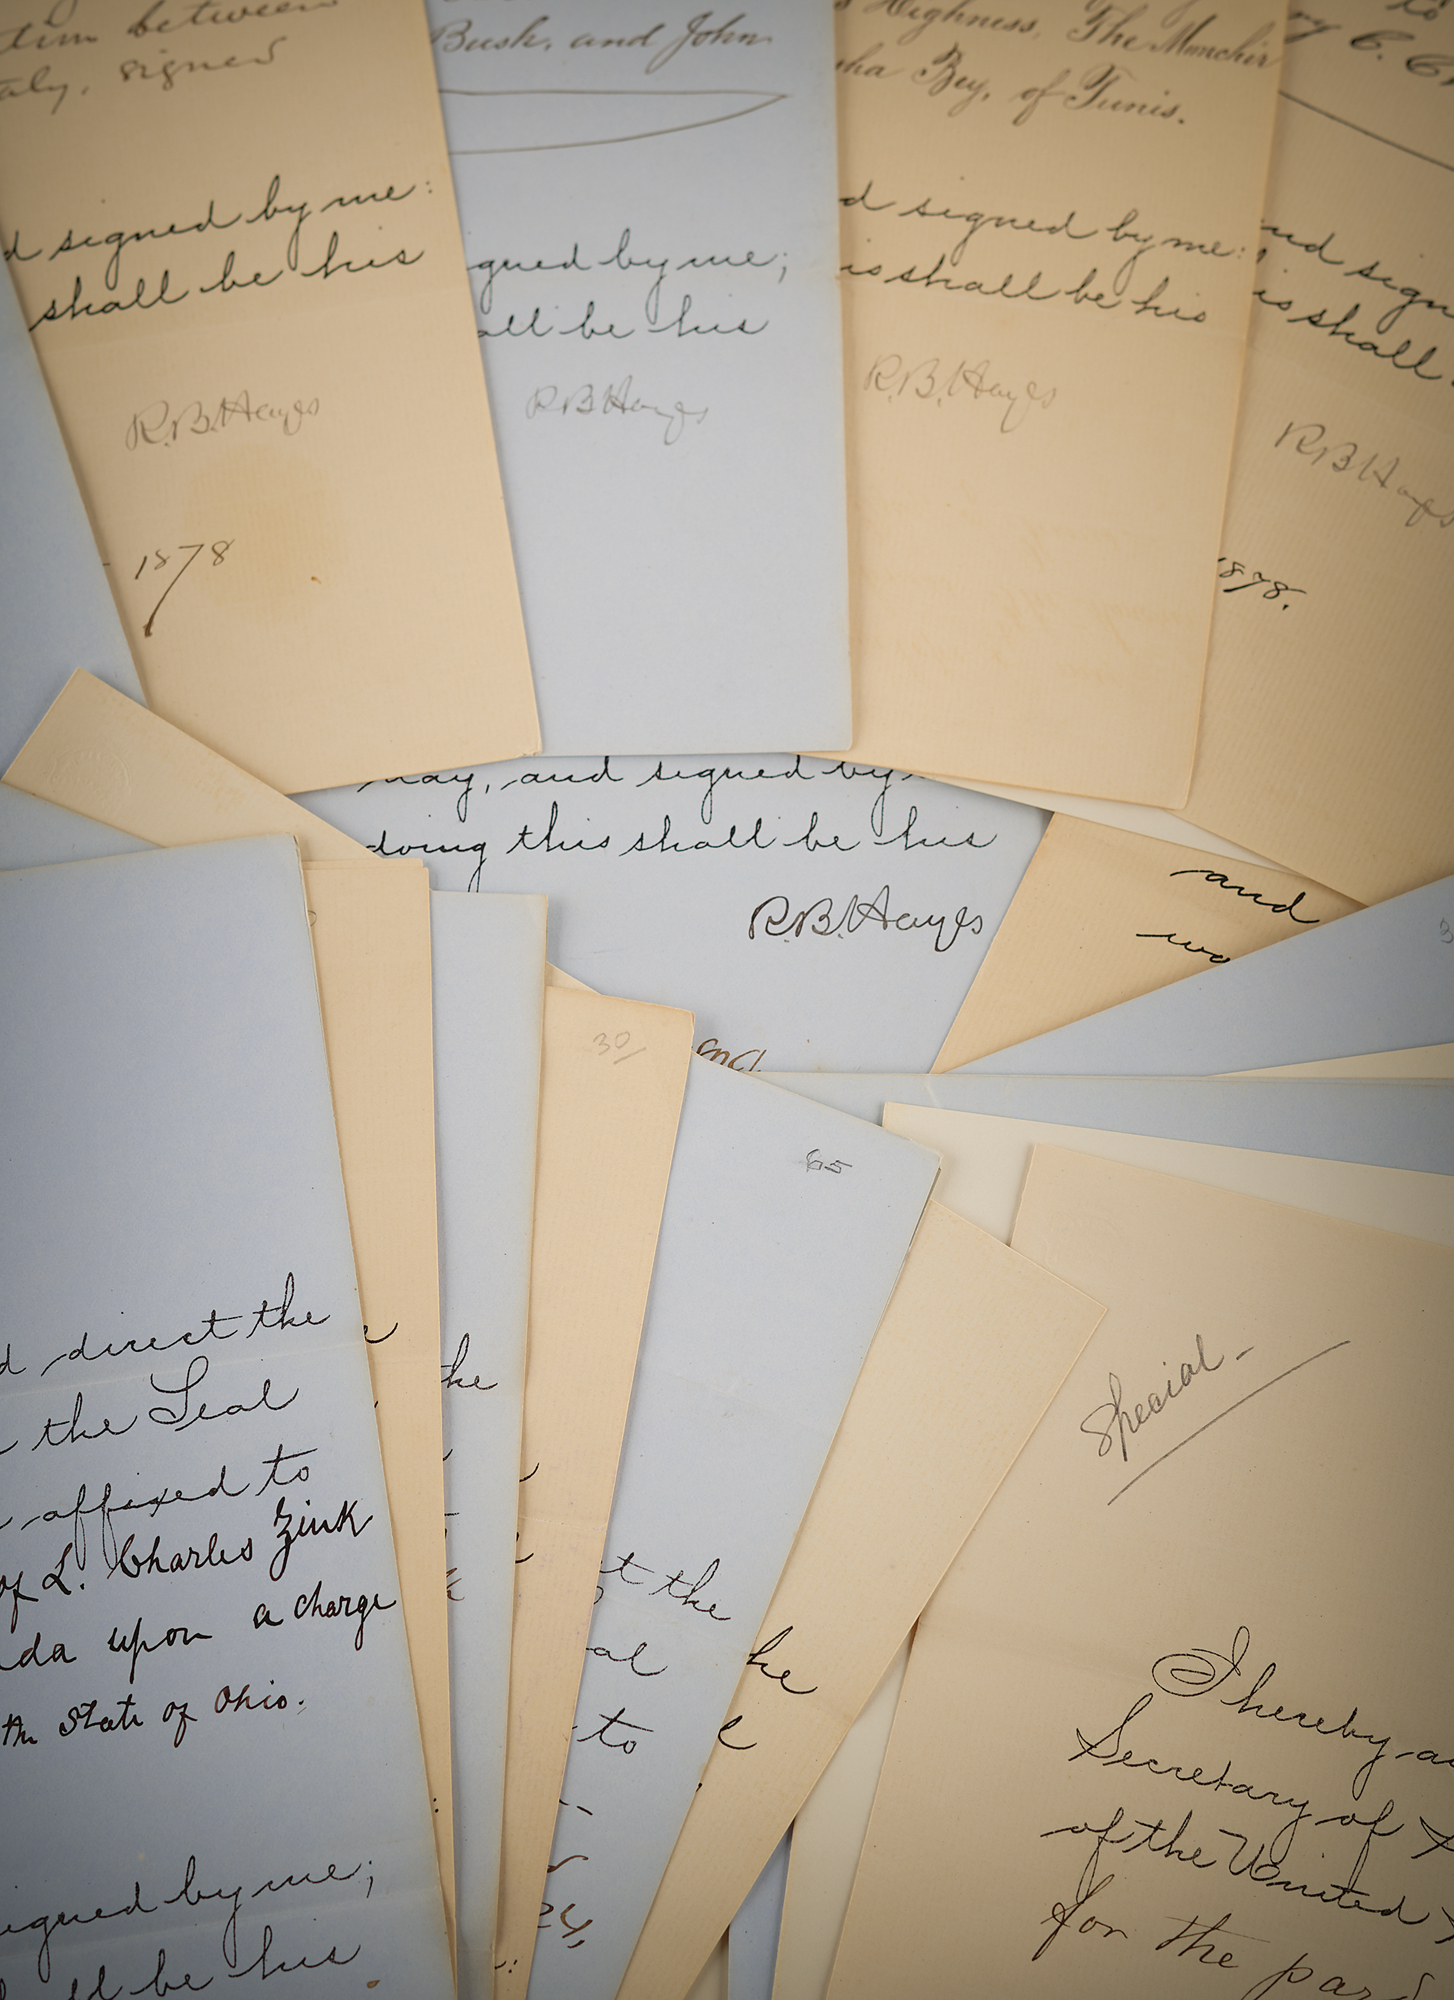 between
signed
d signed by me:
shall be his
R.B.Hayes
1878
Bush, and John
gned by me;
all be his
R.B.Hayes
Highness, The
Bey, of Tunis.
d signed by me:
is shall be his
R.B.Hayes
to
C.
nd sign
is shall
R.B.Hayes
1878.
and signed by
doing this shall be his
R.B.Hayes
and
d direct the
the Seal
affixed to
of L. Charles Zink
da upon a charge
the State of Ohio.
igned by me;
ll be his
the
30/
65
t the
al
to
he
l
Special -
I hereby au
Secretary of S
of the United S
for the pard